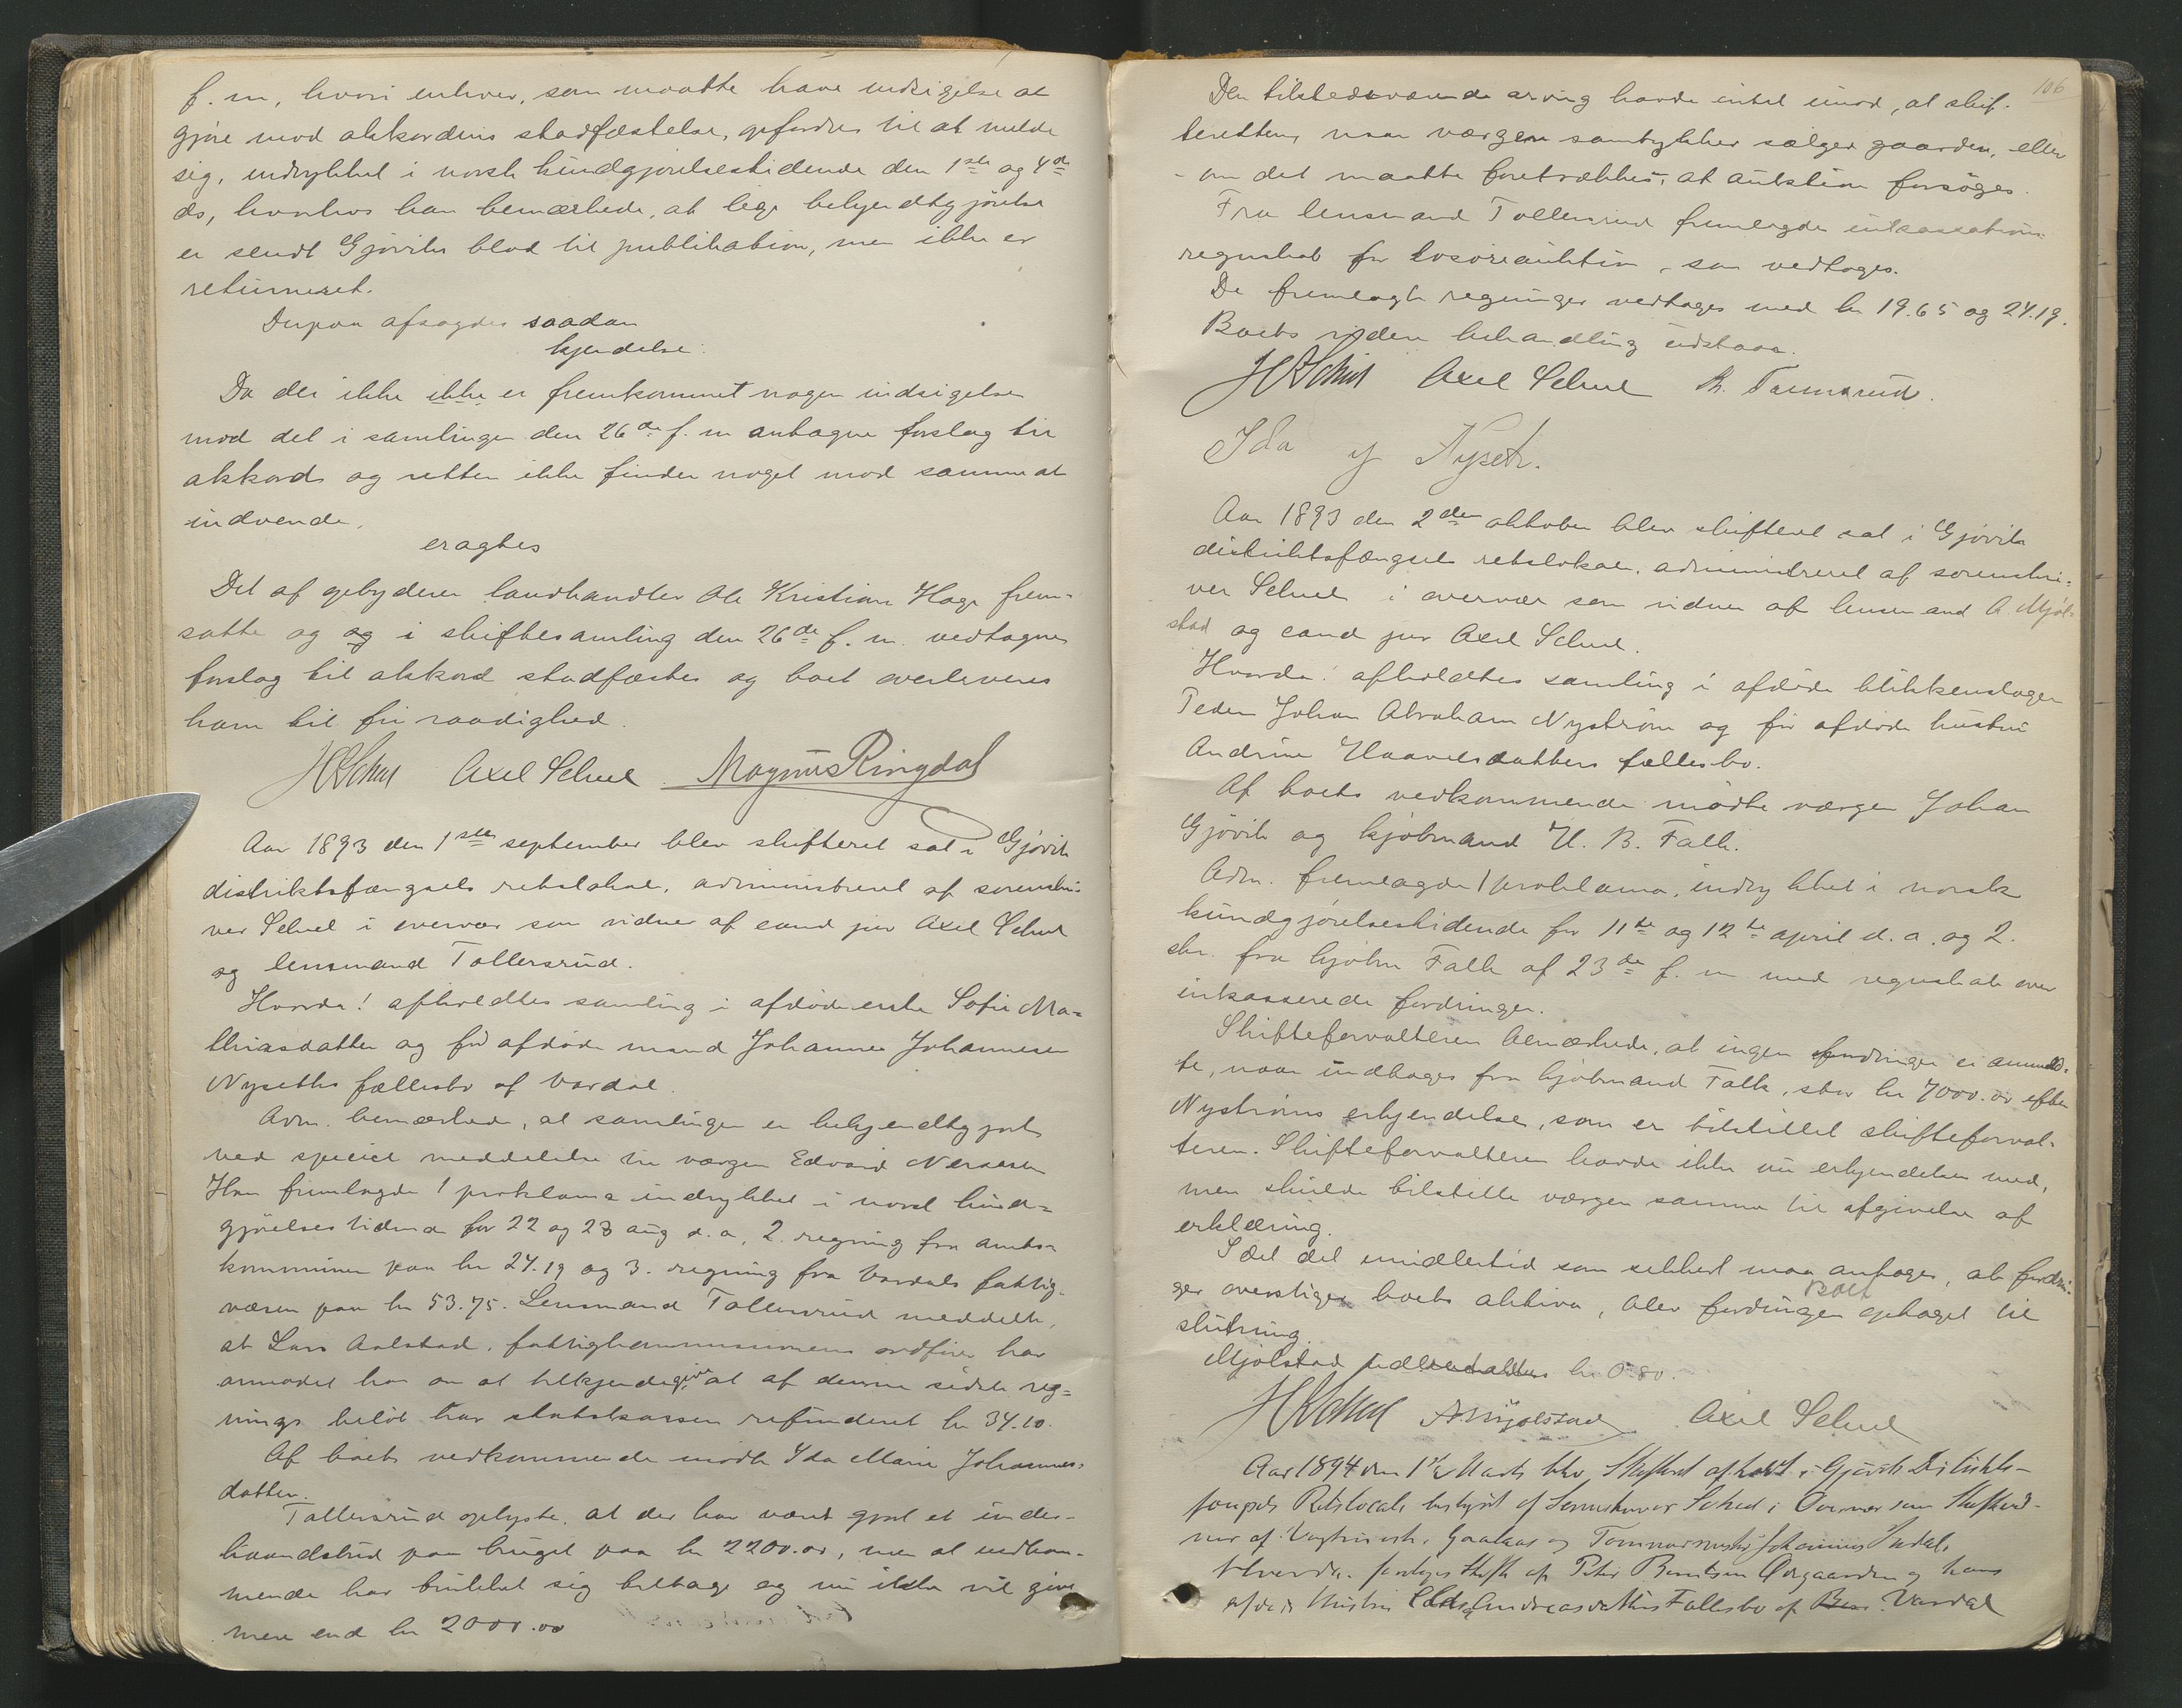 f. m, hvori enhver, som maatte have indsigelse at
gjøre mod akkordens stadfæstelse, opfordres til at melde
sig, indrykket i norsk kundgjørelsestidende den 1ste og 4de
ds, hvorhos han bemærkede, at lige bekjendtgjørelse
er sendt Gjøviks blad til publikation, men ikke er
returneret.
Derpaa afsagdes saadan
kjendelse:
Da der ikke ikke er fremkommet nogen indsigelse
mod det i samlingen den 26de f. m antagne forslag til
akkord og retten ikke finder noget mod samme at
indvende,
eragtes
Det af opbyderen landhandler Ole Kristian Hage frem-
satte og og i skiftesamling den 26de f. m. vedtagne
forslag til akkord stadfæstes og boet overleveres
ham til fri raadighed.
HSchul Axel Schul Magnus Ringdal
Aar 1893 den 1ste september blev skifteret sat i Gjøvik
distriktsfængsels retslokal, administreret af sorenskri-
ver Schul i overvær som vidner af cand jur Axel Schul
og lensmand Tollersrud.
Hvorda! afholdtes samling i afdøde enke Sofie Ma-
thiasdatter og før afdøde mand Johannes Johannesen
Nyseths fællesbo af Vardal.
Adm. bemærkede, at samlingen er bekjendtgjort
ved speciel meddelelse til værgen Edvard
Han fremlagde 1 proklama indrykket i norsk kund-
gjørelsestidende for 22 og 23 aug d. a, 2. regning fra amts-
kommunen paa kr 24.19 og 3. regning fra Vardals fattig-
væsen paa kr 53.75. Lensmand Tollersrud meddelte,
at Lars Aalstad, fattigkommissionens ordfører har
anmodet han om at tilkjendegive at af denne sidste reg-
nings beløb har statskassen refunderet kr 34.10.
Af boets vedkommende mødte Ida Marie Johannes-
datter.
Tollersrud oplyste, at der har været gjort et under-
haandsbud paa bruget paa kr 2200.00, men at vedkom-
mende har trukket sig tilbage og nu ikke vil give
mere end kr 2000.00
106
Den tilstedeværende arving havde intet imod, at skif-
teretten, naar værgen samtykker sælger gaarden, eller
- om det maatte foretrækkes, at auktion forsøges.
Fra lensmand Tollersrud fremlagdes inkassations-
regnskab for Løsøreauktion, som vedtoges.
De fremlagte regninger vedtages med kr 19.65 og 24.19.
Boets videre behandling udstaar.
HSchul Axel Schul Tollersrud.
Ida Nyset.
Aar 1893 den 2den oktober blev skifteret sat i Gjøvik
distriktsfængsels retslokal, administreret af sorenskri-
ver Schul i overvær som vidner af lensmand A. Mjøl-
stad og cand jur Axel Schul.
Hvorda! afholdtes samling i afdøde blikkenslager
Peder Johan Abraham Nystrøm og før afdøde hustru
Andrine Haavelsdatters fællesbo.
Af boets vedkommende mødte værgen Johan
Gjøvik og kjøbmand H. B. Falk.
Adm. fremlagde 1 proklama, indrykket i norsk
kundgjørelsestidende for 11te og 12te april d. a. og 2.
skr. fra kjøbm Falk af 23de f. m med regnskab over
inkasserede fordringer.
Skifteforvalteren bemærkede, at ingen fordringer er anmeld-
te, naar undtages fra kjøbmand Falk, stor kr 7000.00 efter
Nystrøms erkjendelse, som er tilstillet skifteforval-
teren. Skifteforvalteren havde ikke nu erkjendelsen med,
men skulde tilstille værgen samme til afgivelse af
erklæring.
I det det imidlertid som sikkert maa antages, at fordrin-
ger overstiger boets aktiva, blev fordringen Boet optaget til
slutning.
Mjølstad udbetaltes kr 0.80.
HSchul AMjølstad Axel Schul
Aar 1894 den 1ste Marts blev Skifteret afholdt i Gjøvik Distrikts-
fængsels Retslocale bestyret af Sorenskriver Schul i Overvær som Skiftevid-
ner af Vagtmester Gaalaas og Tømmermester Johannes
Hvorda: foretoges Skifte ef. Peter Berntsen Ødegaarden og hans
afdøde Hustru Andreasdatters Fællesbo af Vardal